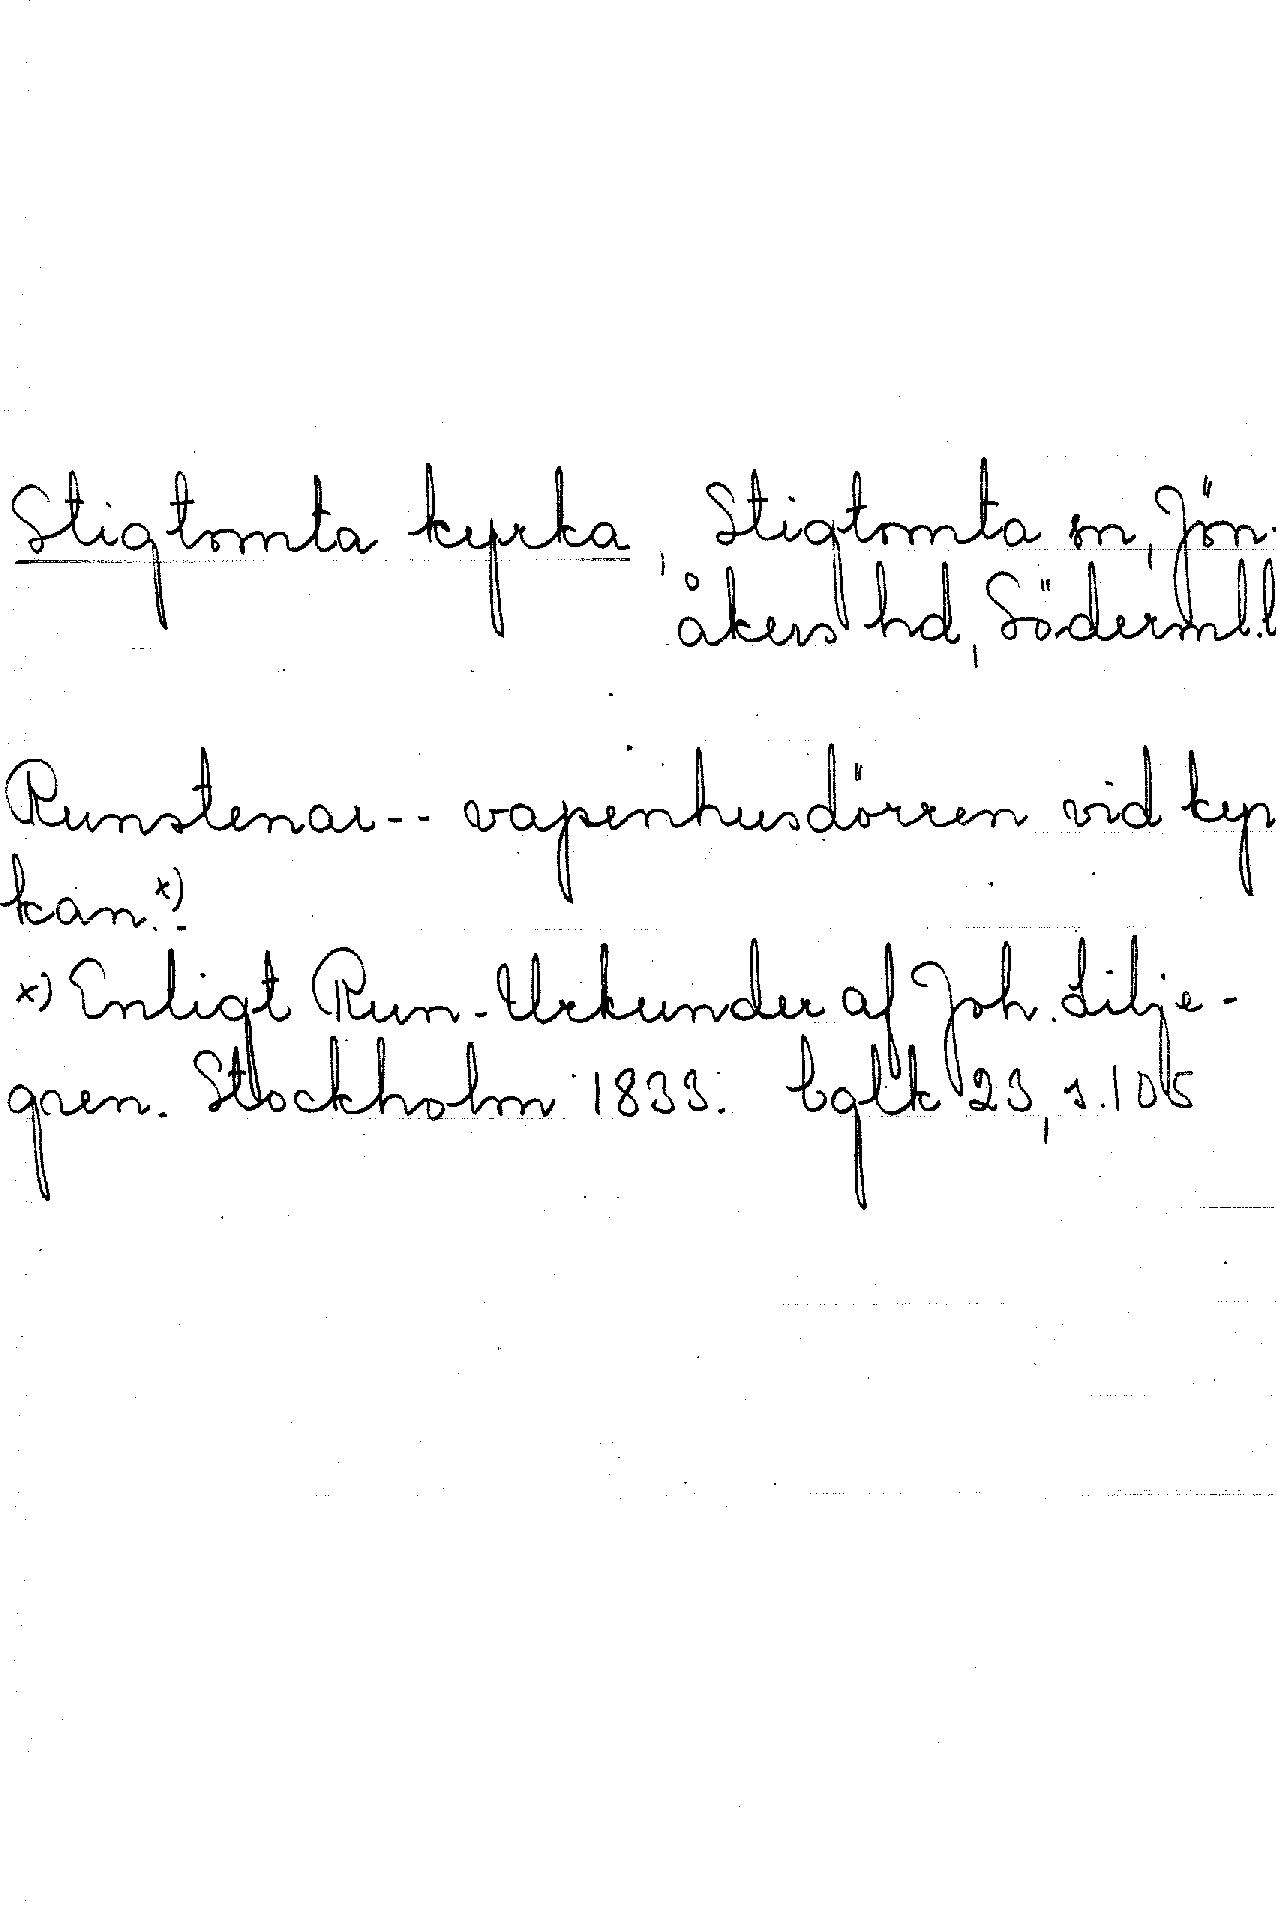 Stigtomta kyrka, Stigtomta sn, Jön-
åkers hd, Söderml.l
Runstenar-- vapenhusdörren vid kyr
kan.x)
x) Enligt Run-Urkunder af Joh. Lilje-
gren. Stockholm 1833. bglk 23, s.105